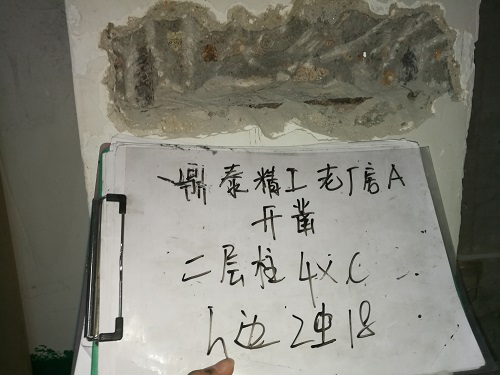 鼎泰精工老厂房A
开凿
二层柱4×C
h边2虫18